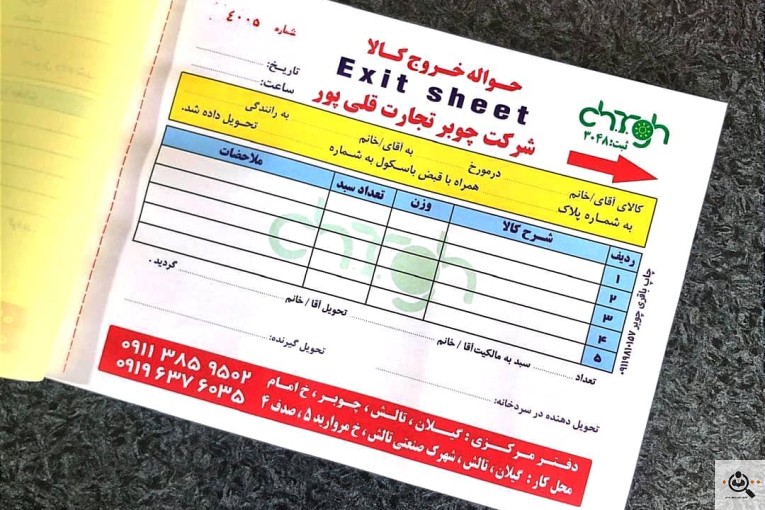 شماره ۴۰۰۵
حواله خروج کالا
Exit sheet
شرکت چوبر تجارت قلی پور
chr.gh
ثبت: ۳۰۴۸
تاریخ:
ساعت:
کالای آقای/خانم درمورخ به آقای/خانم به رانندگی
به شماره پلاک همراه با قبض باسکول به شماره تحویل داده شد.
ردیف شرح کالا وزن تعداد سبد ملاحضات
۱
۲
۳
۴
۵
تعداد سبد به مالکیت آقا / خانم تحویل آقا / خانم گردید .
تحویل دهنده در سردخانه: تحویل گیرنده:
دفتر مرکزی : گیلان ، تالش ، چوبر ، خ امام
محل کار : گیلان ، تالش ، شهرک صنعتی تالش ، خ مروارید ۵ ، صدف ۴
۰۹۱۱ ۳۸۵ ۹۵۰۲
۰۹۱۹ ۶۳۷ ۶۰۳۵
چاپ باقری چوبر ۰۹۱۱۹۸۱۰۱۵۷